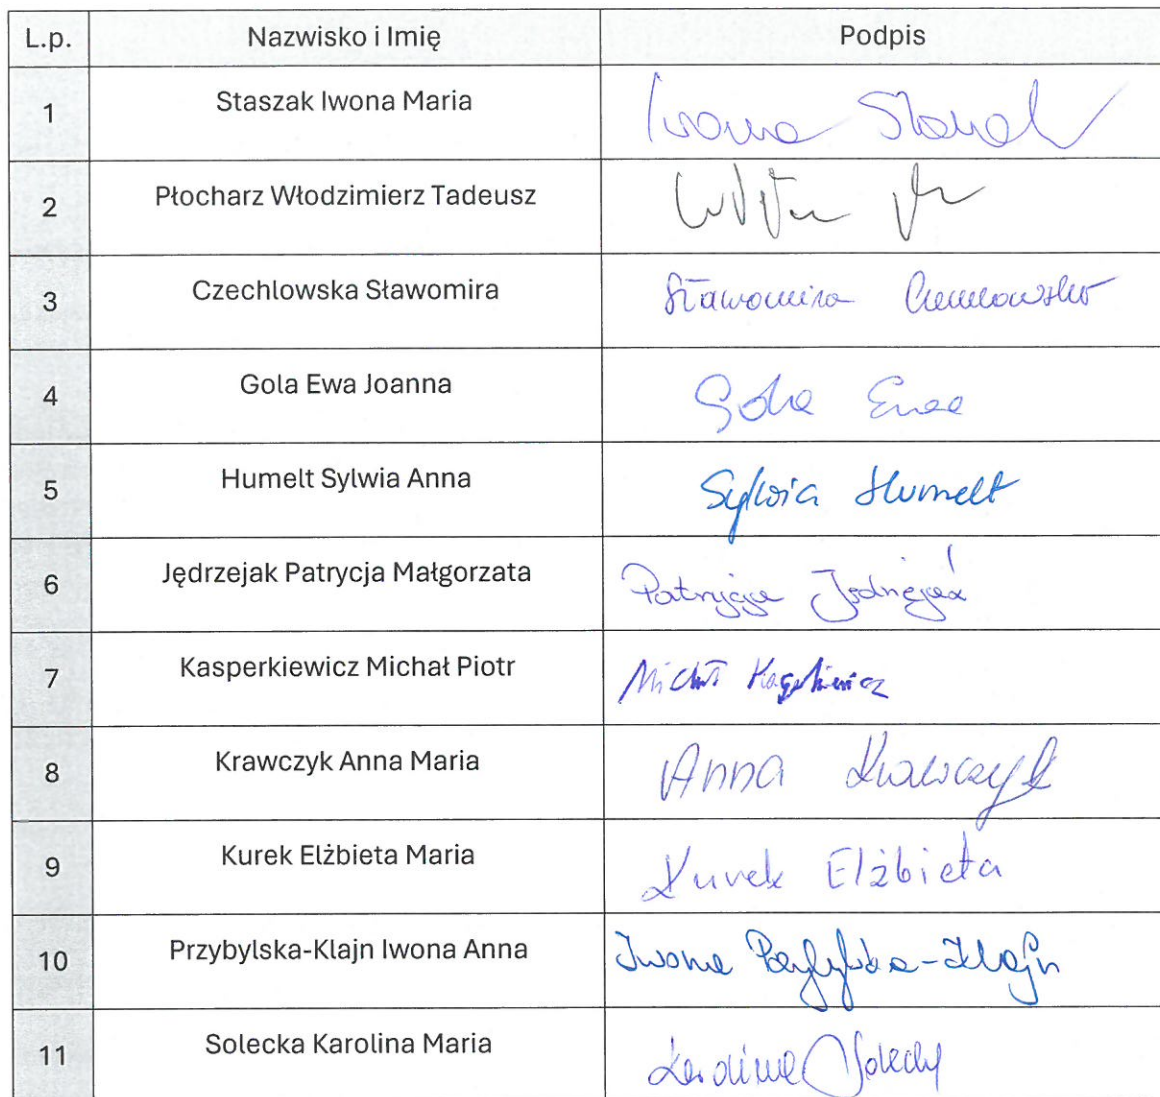 L.p. Nazwisko i Imię Podpis
1 Staszak Iwona Maria Iwona Staszak
2 Płocharz Włodzimierz Tadeusz
3 Czechlowska Sławomira Sławomira Czechlowska
4 Gola Ewa Joanna Gola Ewa
5 Humelt Sylwia Anna Sylwia Humelt
6 Jędrzejak Patrycja Małgorzata Patrycja Jędrzejak
7 Kasperkiewicz Michał Piotr Michał Kasperkiewicz
8 Krawczyk Anna Maria Anna Krawczyk
9 Kurek Elżbieta Maria Kurek Elżbieta
10 Przybylska-Klajn Iwona Anna Iwona Przybylska-Klajn
11 Solecka Karolina Maria Karolina Solecka